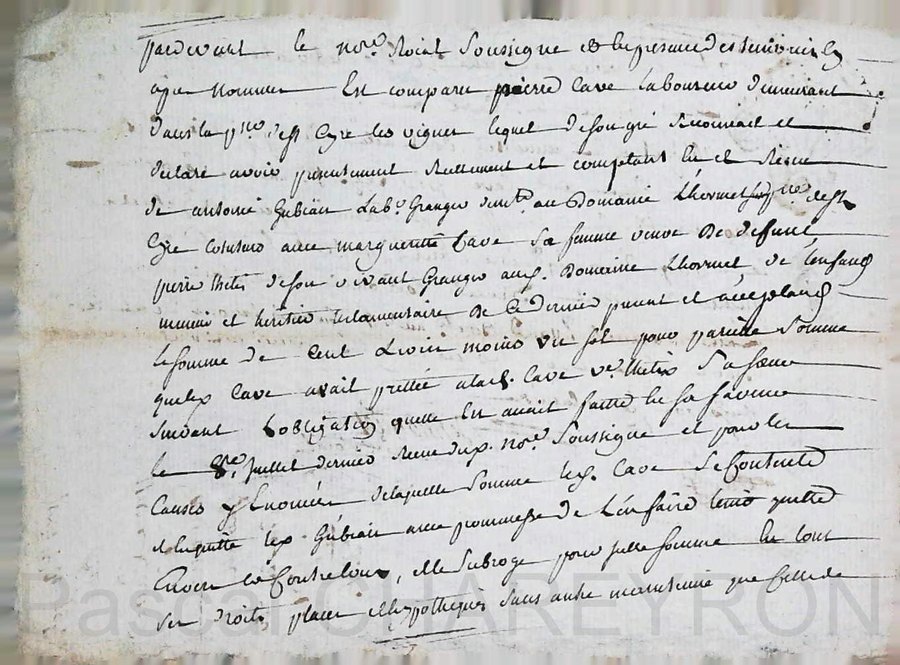 pardevant le nore. Roial Soussigné & en presence des temoins en
apres Nommes Est comparu pierre Cave Laboureur demeurant
dans la psse de st Cyre les vignes lequel de son gré a reconnu et
declaré avoir presentement reellement et comptant eu et Receu
de antoine Gubian Labr. Granger demt. au Domaine Lhormet psse de st
Cyre comme mari marguerite Cave Sa femme veuve De defunt
pierre thetis de son vivant Granger aud. Domaine Lhormet de
et heritier testamentaire De Ce dernier present et acceptant
la somme de Cent livres moins un sol pour pareille Somme
que led Cave avait prettée a lad. Cave ve. thetis Sa soeur
suivant Lobligation quelle En avait passée en sa faveur
le 8e. juillet dernier Receue dud. nore. Soussigné et pour les
Causes y Enoncées de laquelle Somme led. Cave Se Contente
et en quitte led Gubian avec promesse de L'en faire tenir quitte
Envers et Contre tous, et le Subroge pour susse somme en tous
ses droits places et hypotheques sans autre que celle de
Pascal CHAREYRON